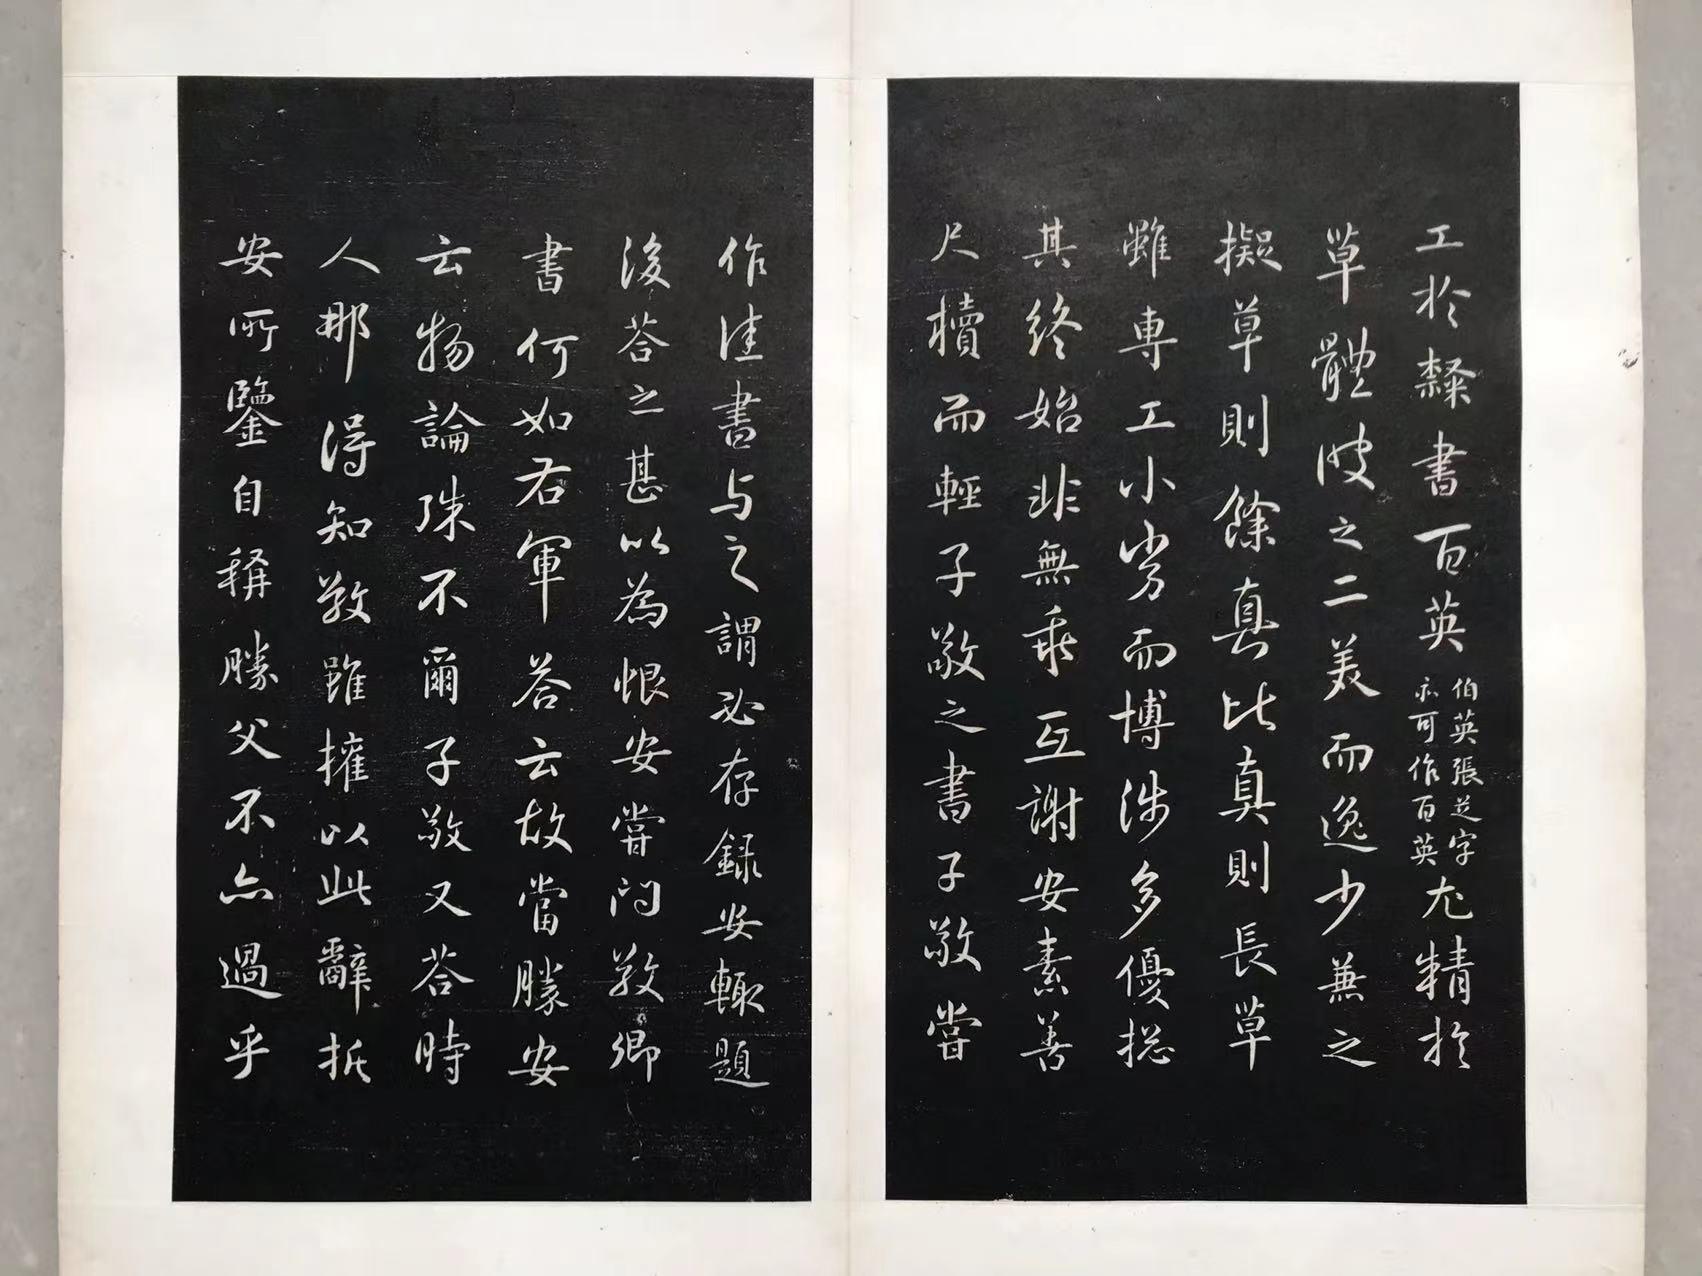 工於隸書百英伯英張芝字亦可作百英尤精於
草體彼之二美而逸少兼之
擬草則餘真比真則長草
雖專工小劣而博涉多優揔
其終始非無乖互謝安素善
尺牘而輕子敬之書子敬嘗
作佳書与之謂必存録安輒題
後荅之甚以為恨安嘗問敬卿
書何如右軍荅云故當勝安
云物論殊不爾子敬又荅時
人那得知敬雖擁以此辭折
安所鑒自稱勝父不亦過乎